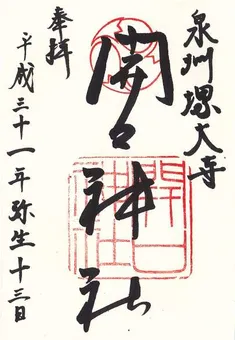 泉州堺大寺
開口神社
奉拝
平成三十一年弥生十三日
開口神社